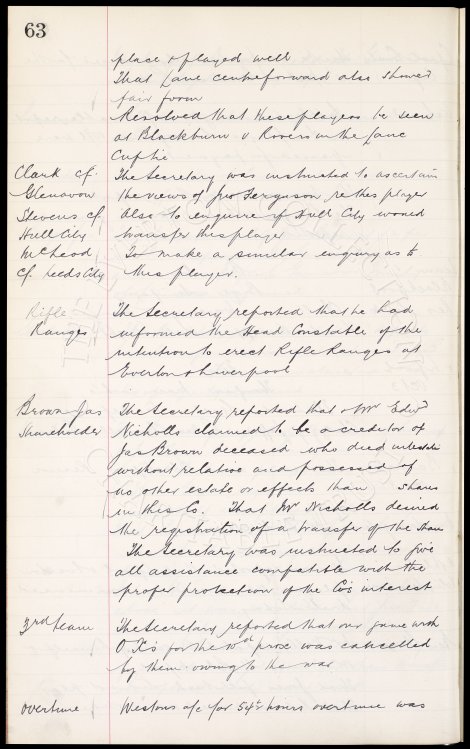 63
place & played well
That Lane centreforward also showed
fair form
Resolved that these players be seen
at Blackburn v Rovers in the Lanc
Cup tie
Clark cf. The Secretary was instructed to ascertain
Glenavon the views of Jno Ferguson re this player
Stevens cf Also to enquire if Hull City would
Hull City transfer this player
McLeod To make a similar enquiry as to
cf. Leeds City this player.
Rifle The Secretary reported that he had
Ranges informed the Head Constable of the
intention to erect Rifle Ranges at
Everton & Liverpool
Brown Jas The Secretary reported that Mr Edwd
Shareholder Nicholls claimed to be a creditor of
Jas Brown deceased who died intestate
without relative and possessed of
no other estate or effects than shares
in this Co. That Mr Nicholls desired
the registration of a transfer of the shares
The Secretary was instructed to give
all assistance compatible with the
proper protection of the Co's interest
3rd team The Secretary reported that our game with
O X's for the 10th prox was cancelled
by them owing to the war
Overtime Westons a/c for 54½ hours overtime was